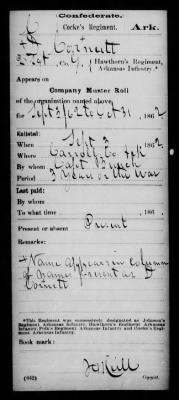 Confederate.
Cocke's Regiment, Ark.
Cornett
Hawthorn's Regiment,
Arkansas Infantry.*
Appears on
Company Muster Roll
of the organization named above,
for Sept 3, 62 to Oct 31, 1862
Enlisted:
When Sept 3, 1862
Where Carroll Co. Ark
By whom Capt.
Period 3 years or the War
Last paid:
By whom
To what time , 186 .
Present or absent Present
Remarks:
Name appears in column
of names present as
Cornett
*This Regiment was successively designated as Johnson's Regiment Arkansas Infantry, Hawthorn's Regiment Arkansas Infantry, Polk's Regiment Arkansas Infantry and Cocke's Regiment Arkansas Infantry.
Book mark:
(642)
Copyist.